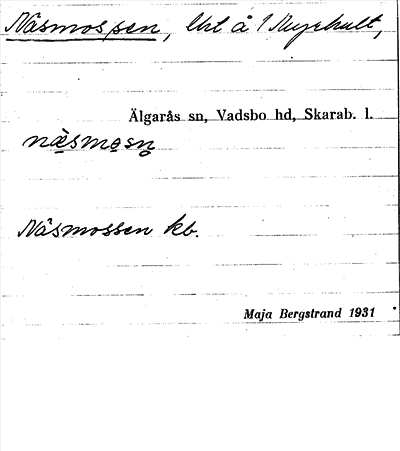 Näsmossen, lht å 1 Myrhult,
Älgarås sn, Vadsbo hd, Skarab. l.
næ̀smosn̥
Näsmossen kb.
Maja Bergstrand 1931